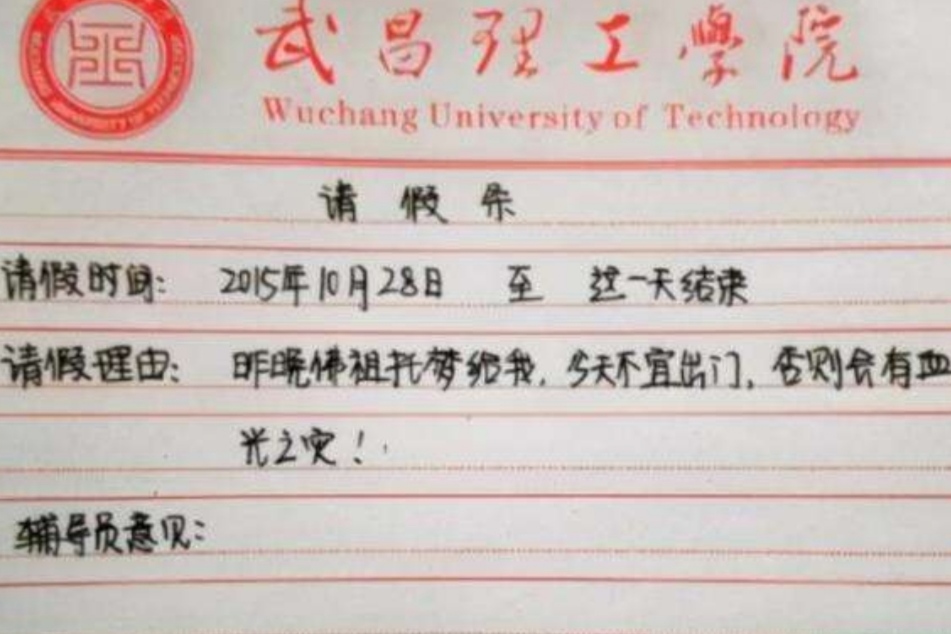 武昌理工學院
Wuchang University of Technology
请假条
请假时间: 2015年10月28日 至 这一天结束
请假理由: 昨晚佛祖托梦给我,今天不宜出门,否则会有血
光之灾!
辅导员意见: